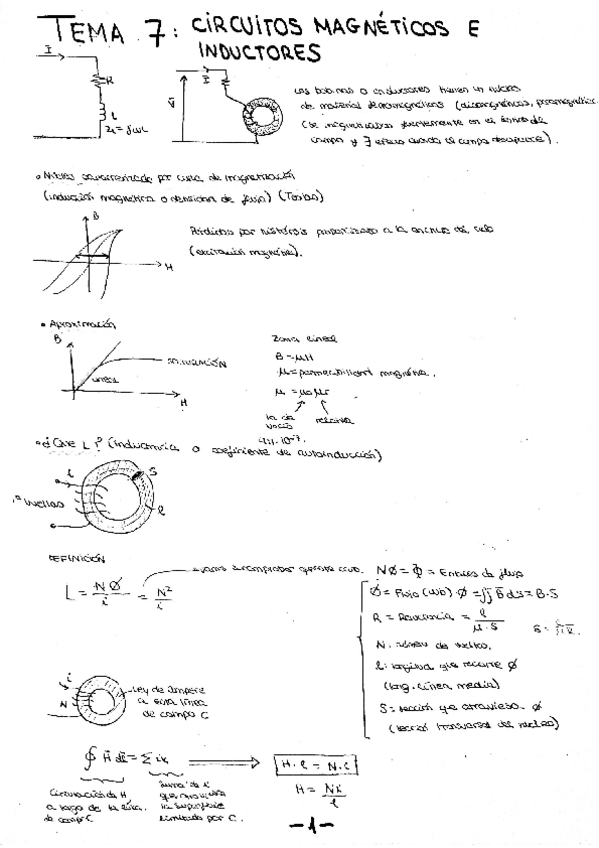 TEMA 7: CIRCUITOS MAGNÉTICOS E
INDUCTORES
I
R
L
Z_L = jωL
I
V
Las bobinas o inductores tienen un núcleo
de material ferromagnético (diamagnéticos, paramagnéticos
(se magnetizan fuertemente en el sentido del
campo y ∃ efecto cuando el campo desaparece).
caracterizado por curva de magnetización
(inducción magnética o densidad de flujo) (Teslas)
B
H
Pérdidas por histéresis proporcionales a la anchura del ciclo
(excitación magnética).
• Aproximación
B
SATURACIÓN
LINEAL
H
Zona lineal
B = μH
μ = permeabilidad magnética.
μ = μ0 μr
la del
vacío
relativa
4π·10⁻⁷
• ¿Qué L? (inductancia o coeficiente de autoinducción)
i
S
nº vueltas
l
DEFINICIÓN
L = NØ/i = N²/R
NØ = Φ = Enlaces de flujo
Ø = Flujo (Wb) Ø = ∫∫ B ds = B·S
R = Reluctancia = l/μ·S
N: número de vueltas.
l: longitud que recorre Ø
(long. línea media)
S = sección que atraviesa Ø
(sección transversal del núcleo)
i
N
Ley de Ampere
a esta línea
de campo C
∮ H dl = Σ ik
H · l = N · i
Circulación de H
a largo de la línea
de campo C
Suma de i
que atraviesa
la superficie
limitada por C.
H = Ni/l
-1-